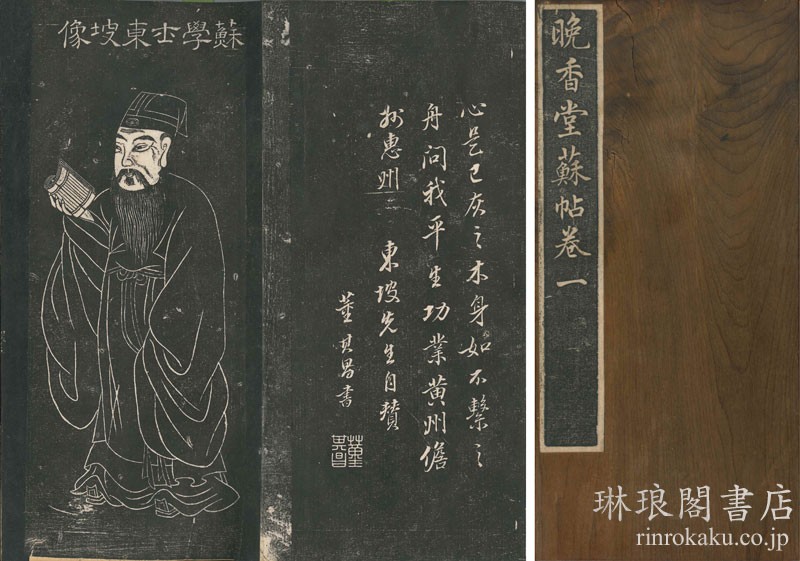 蘇學士東坡像
心是已灰之木身如不繫之
舟問我平生功業黄州儋
州惠州 東坡先生自贊
董其昌書
董其昌
晚香堂蘇帖卷一
琳琅閣書店
rinrokaku.co.jp